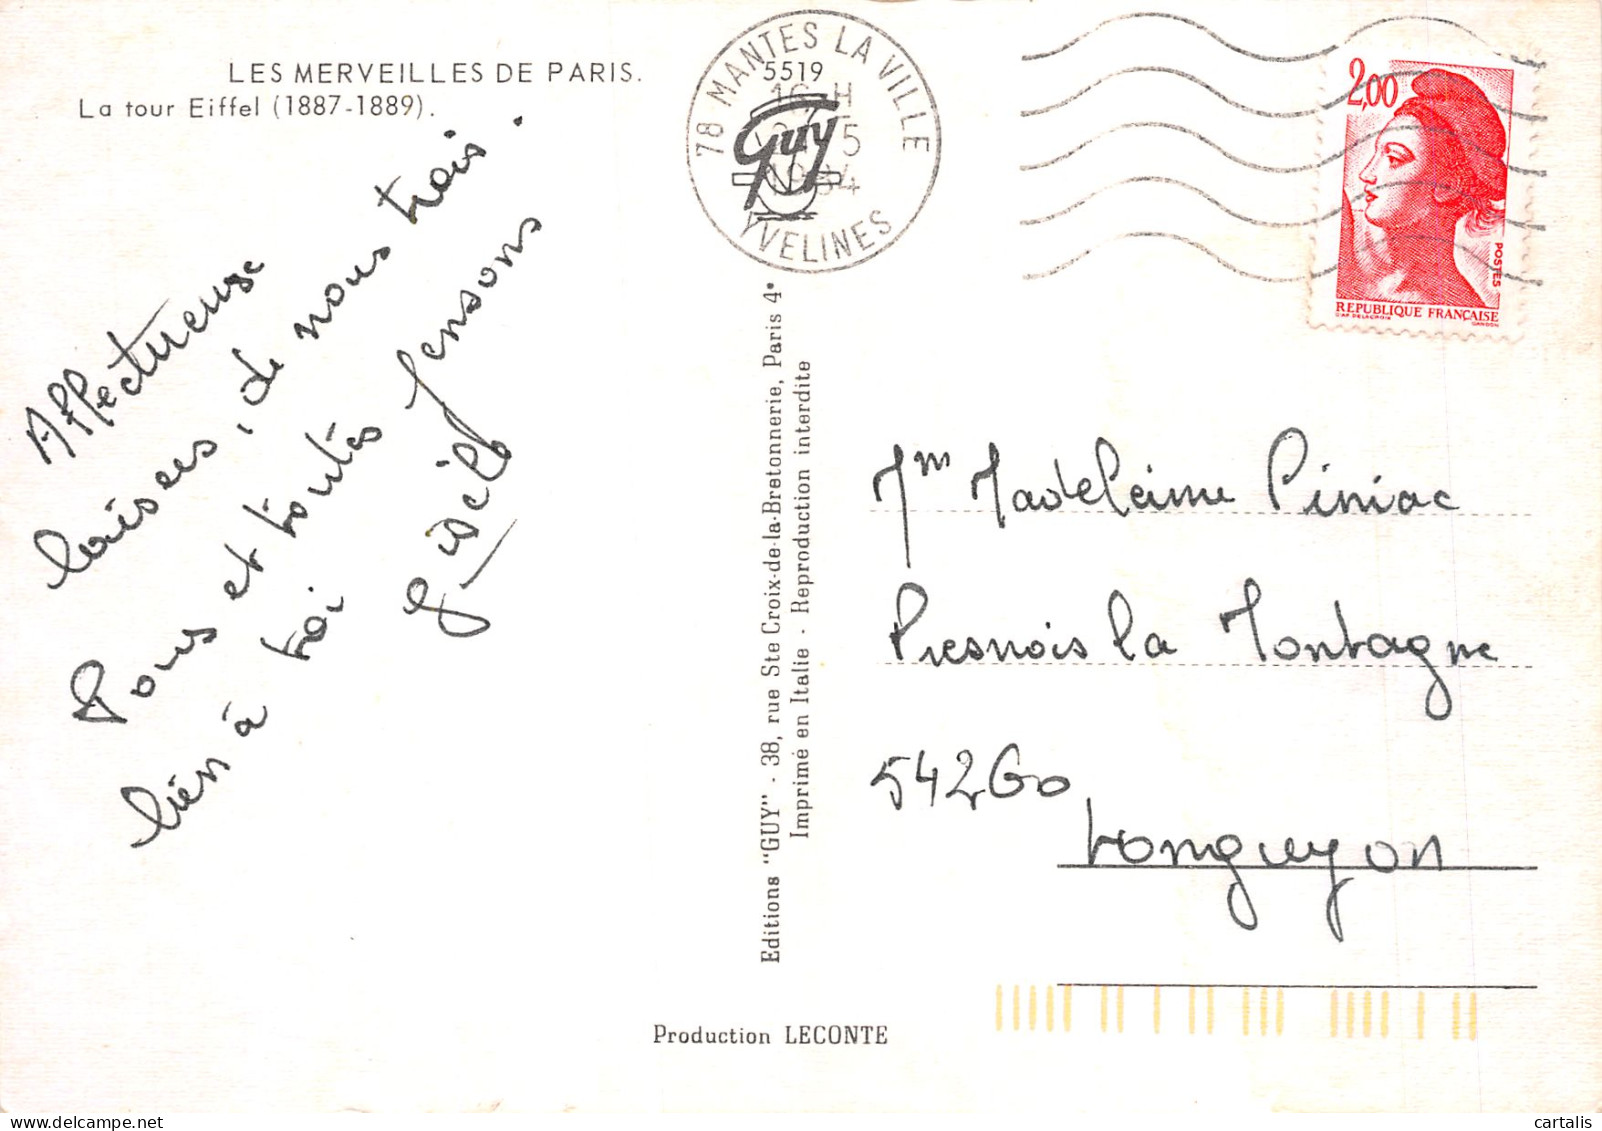 LES MERVEILLES DE PARIS.
La tour Eiffel (1887-1889).
Affectueuse
baisers, de nous trois.
Nous et toutes pensons
bien à toi
78 MANTES LA VILLE
5519
16 H
5
1984
Guy
YVELINES
2,00
POSTES
REPUBLIQUE FRANÇAISE
D'AP. DELACROIX
GANDON
Editions "GUY" - 38, rue Ste Croix-de-la-Bretonnerie, Paris 4e
Imprimé en Italie - Reproduction interdite
Mme Madeleine Piniac
Presnois la Montagne
54260
Longuyon
Production LECONTE
cartalis